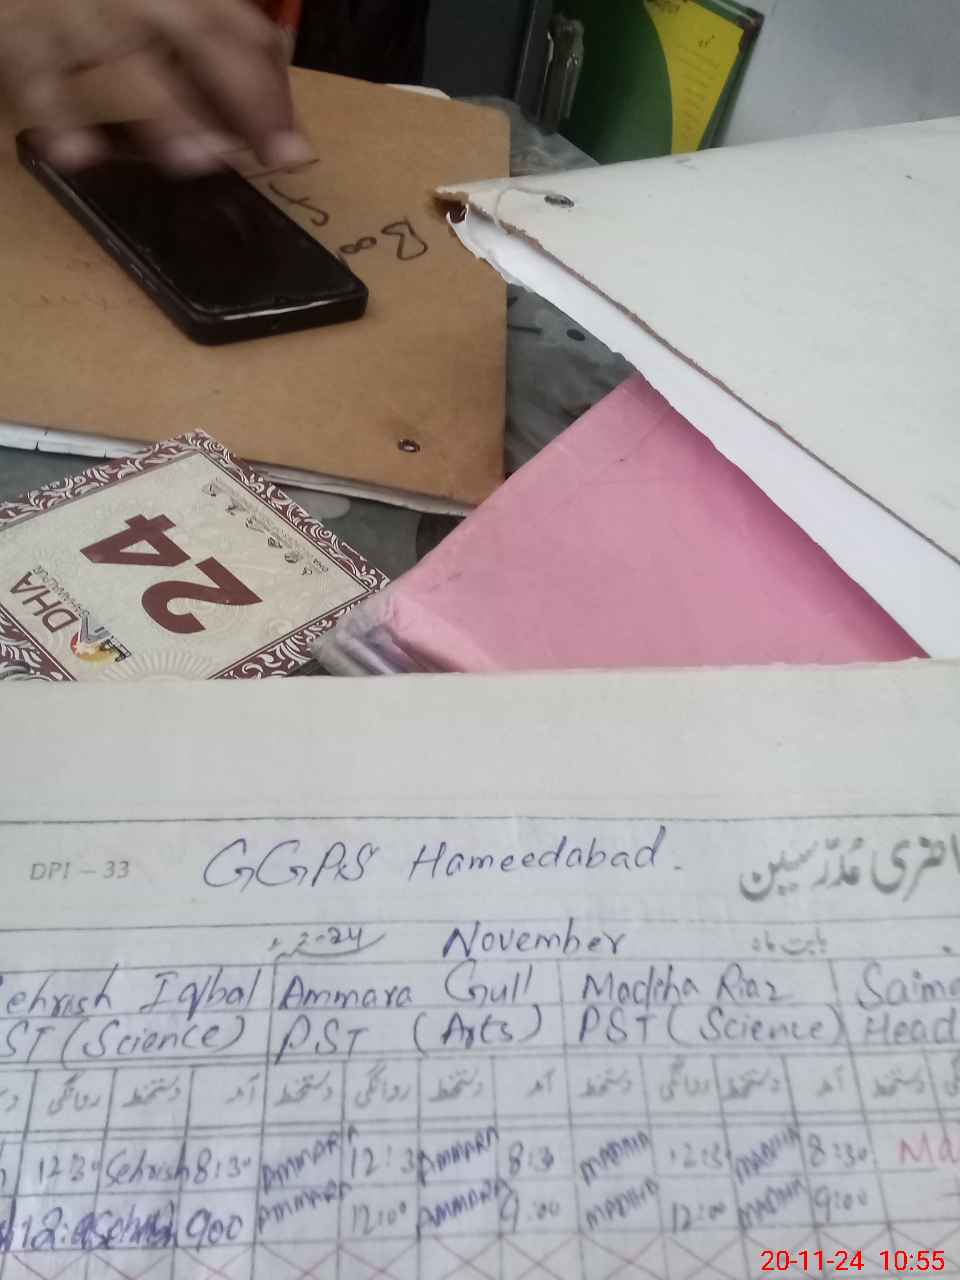 Boo
24
DHA
BAHAWALPUR
DPI - 33 GGPS Hameedabad. حاضری مُدرّسین
2024 November بابت ماہ
ehrish Iqbal Ammara Gull Madiha Riaz Saima
ST (Science) PST (Arts) PST (Science) Head
روانگی دستخط آمد دستخط روانگی دستخط آمد دستخط روانگی دستخط آمد دستخط
1230 Sehrish 8:30 AMMARA 12:30 AMMARA 8:30 MADIHA 12:30 MADIHA 8:30 Ma
12:00 Sehrish 900 AMMARA 12:00 AMMARA 9:00 MADIHA 12:00 MADIHA 9:00
20-11-24 10:55